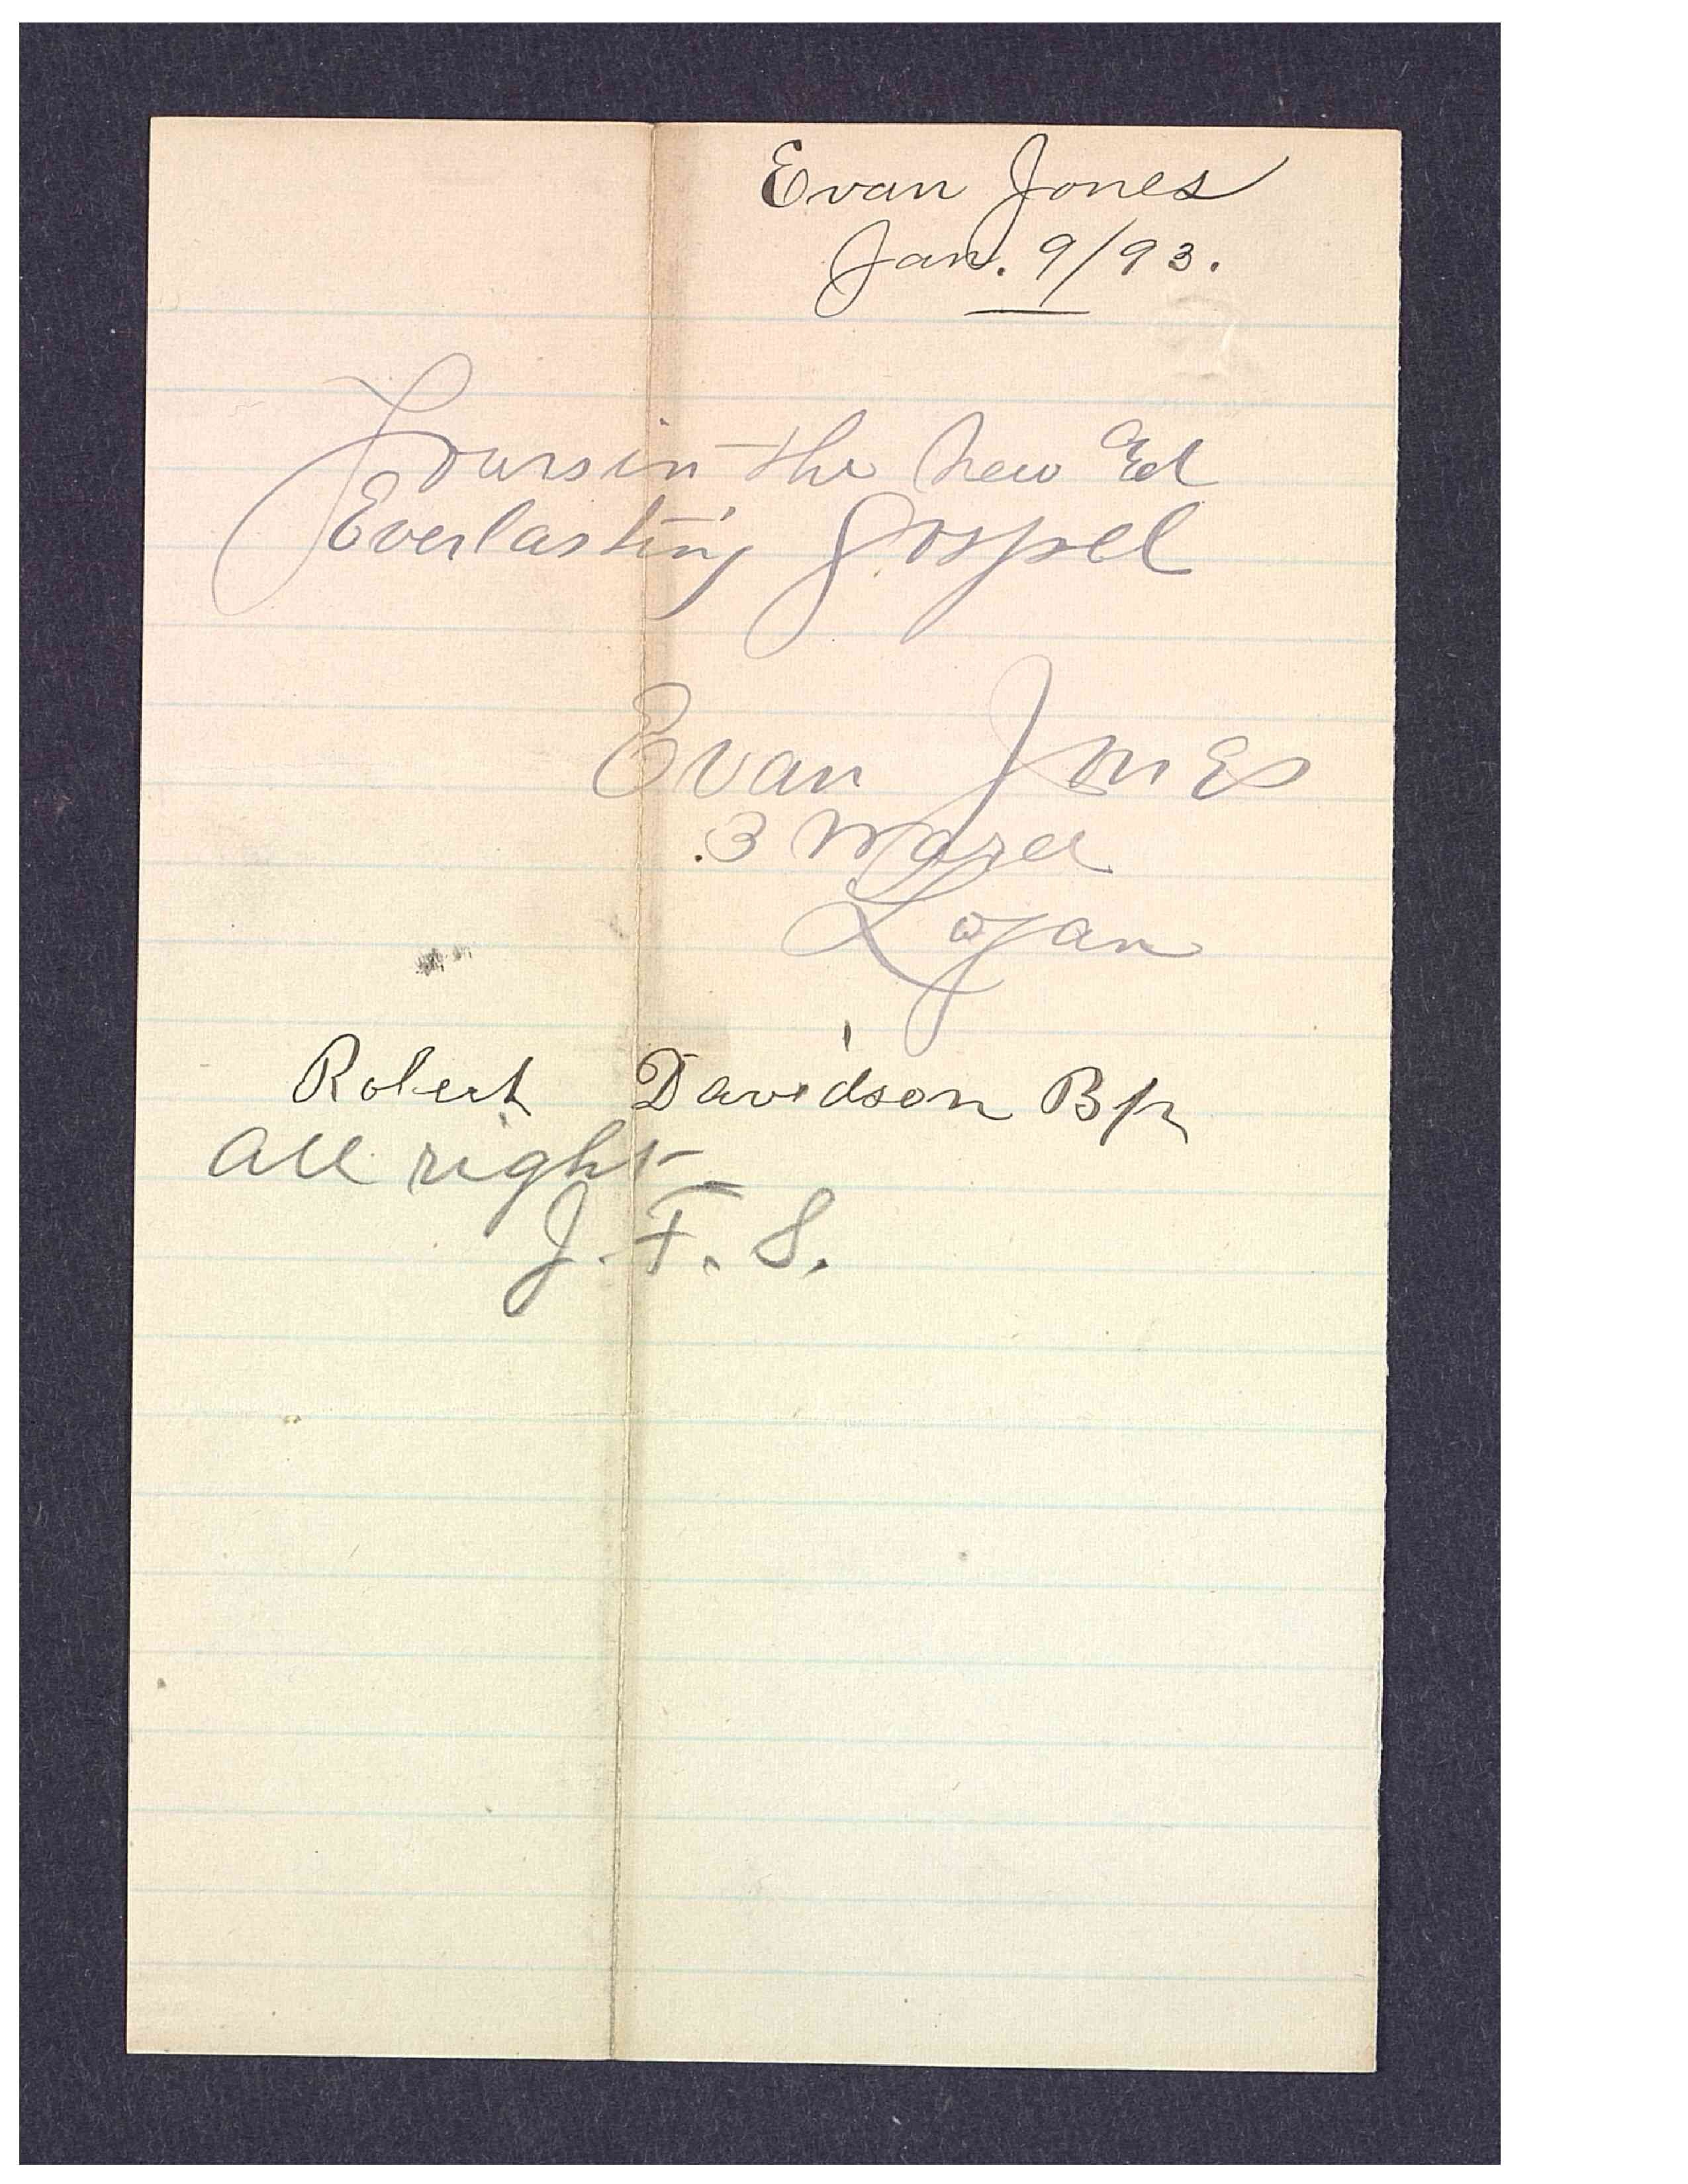 Evan Jones
Jan. 9/93.
Yours in the New &
Everlasting Gospel
Evan Jones
3 Ward
Logan
Robert Davidson Bp
All right
J. F. S.